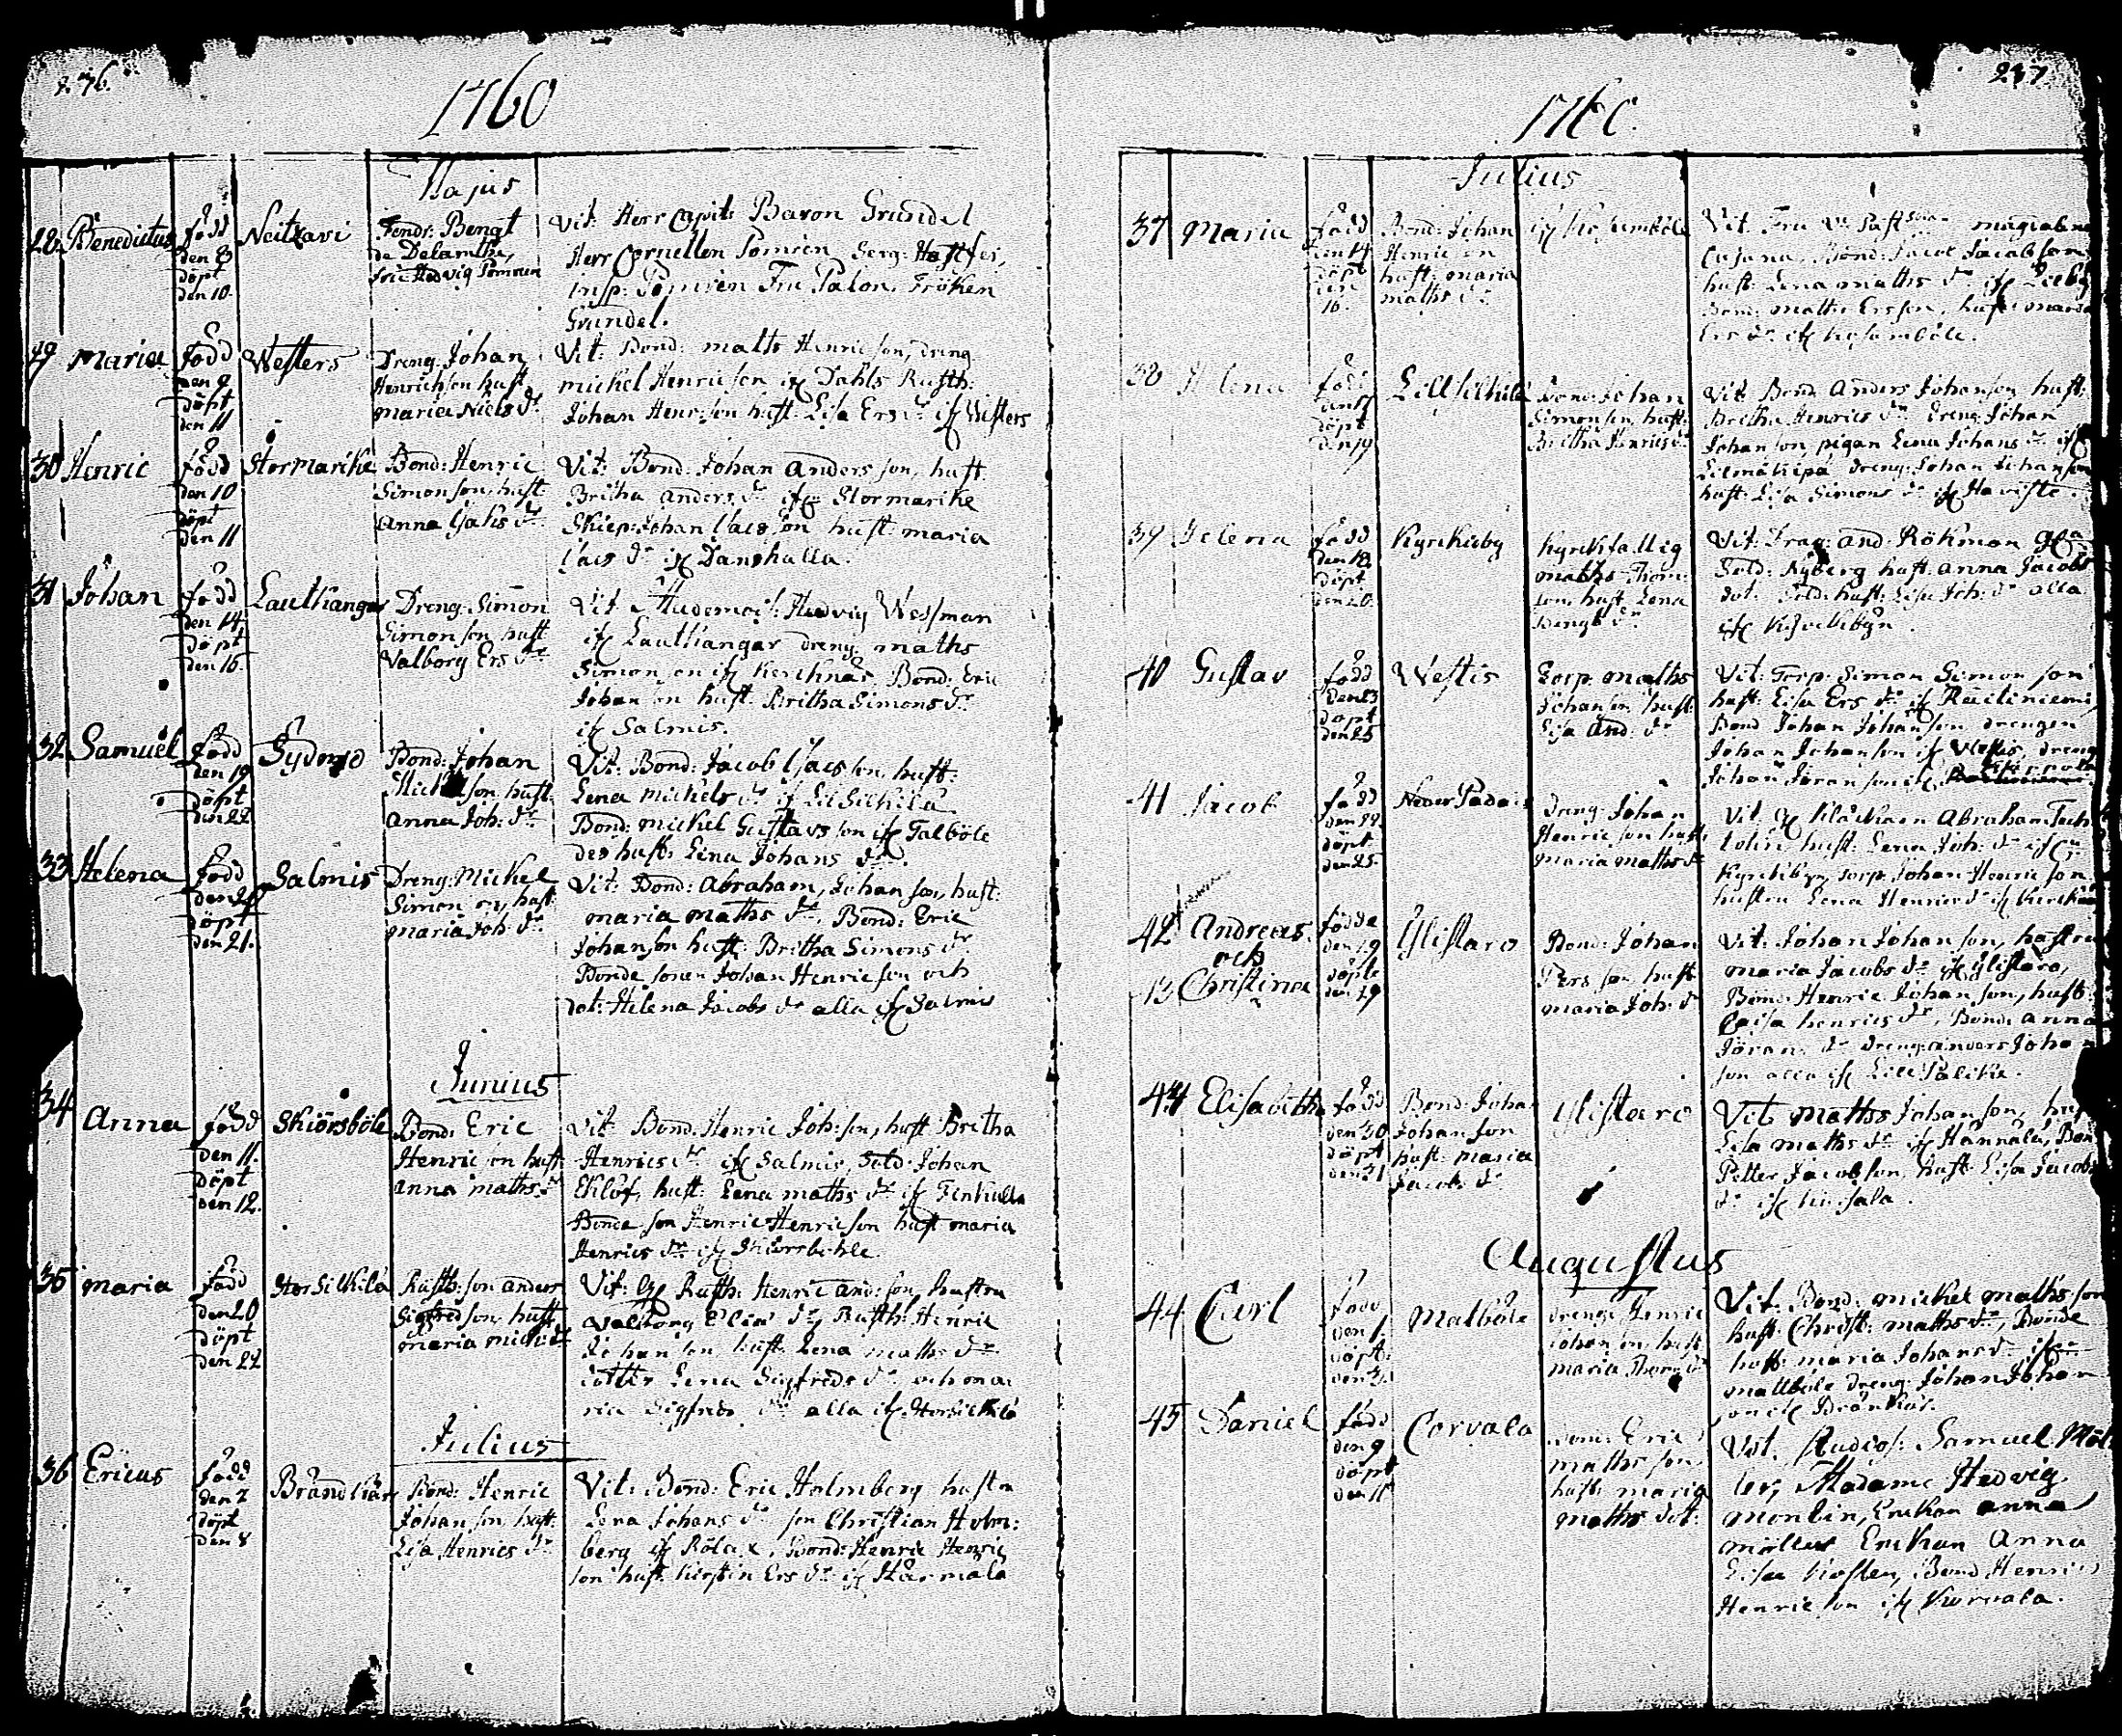 276.
1760
Majus
28. Benedictus
född
den 8
döpt
den 10.
Neitzari
Fendr: Bengt
de Delamthe,
fru Hedvig Pomren
Vit: Herr Capit: Baron Grundel
Herr Cornetten Pomren Serg: Hastfer,
insp: Pomren Fru Palon, Fröken
Grundel.
29 Maria
född
den 9
döpt
den 11
Westers
Dreng: Johan
Henrichson hust
Maria Niels dr
Vit: Bond: Maths Henricson, dreng
Michel Henricson if Dahls Rusth:
Johan Henr: son hust: Lisa Ers dr if Westers
30 Henric
född
den 10
döpt
den 11
Stormarike
Bond: Henric
Simonson, hust:
Anna
Vit: Bond: Johan Andersson, hust:
Britha Anders dr if Stormarike
Skiep: Johan son hust: Maria
dr if Danshalla.
31 Johan
född
den 14
döpt
den 16.
Lautkangar
Dreng: Simon
Simonson, hust
Valborg Ers dr
Vit: Hedvig Wessman
if Lautkangar dreng: Maths
Simonson if Kerknäs Bond: Eric
Johanson hust: Britha Simons dr
if Salmis.
32 Samuel
född
den 19
döpt
den 22
Bond: Johan
son hust:
Anna Joh: dr
Vit: Bond: Jacob son, hust:
Lena Michels dr if
Bond: Michel Gustavsson if Talböle
des hust: Lena Johans dr.
33 Helena
född
den 20
döpt
den 21.
Salmis
Dreng: Michel
Simonson, hust
Maria Joh: dr
Vit: Bond: Abraham Johanson, hust:
Maria Maths dr, Bond: Eric
Johanson hust: Britha Simons dr
Bonde sonen Johan Henricson och
dot: Helena Jacobs dr alla if Salmis
Junius
34 Anna
född
den 11.
döpt
den 12.
Skiörsböle
Bond: Eric
Henricson hust:
Anna Maths dr
Vit: Bond: Henric Joh: son, hust: Britha
Henrics dr if Salmis, Sold: Johan
Eklöf, hust: Lena Maths dr if Finkulla
Bonde son Henric Henricson hust Maria
Henrics dr if
35 Maria
född
den 20
döpt
den 22
Storsilkila
Rusth: son Anders
Sigfredson, hust
Maria
Vit: Rusth: Henric And: son, hustru
Valborg Elias dr, Rusth: Henric
Johanson hust: Lena Maths dr
dotter Lena Sigfreds dr och Ma
ria Sigfreds dr alla if Storsilkila
Julius
36 Ericus
född
den 7
döpt
den 8
Brändkär
Bond: Henric
Johanson hust:
Lisa Henrics dr
Vit: Bond: Eric Holmberg hustru
Lena Johans dr son Christian Holm:
berg if Bond: Henric Henric
son hust: Kirstin Ers dr if Härmälä
237
1760.
Julius
37 Maria
född
den 14
döpt
den
16.
Bond: Johan
Henricson
hust: Maria
Maths dr
Vit: Fru Magdalena
Bond: Jacob Jacobson
hust: Lena Maths dr if
Bond: Maths Ersson, hust: Maria
Ers dr if
38 Helena
född
den 17
döpt
den 19
Bond: Johan
Simonson, hust:
Britha Henrics dr
Vit: Bond: Anders Johanson hust:
Britha Henrics dr Dreng: Johan
Johanson, pigan Lena Johans dr if
dreng: Johan Johanson
hust: Lisa Simons dr if
39 Helena
född
den 18
döpt
den 20.
Kyrckieby
Kyrkfattig
Maths Thom:
son, hust: Lena
Bengts dr
Vit: Drag: And: Rökman
Sold: Nyberg hust: Anna Jacobs
dot: Sold: hust: Lisa Joh: dr alla
if
40 Gustav
född
den 23
döpt
den 25
Westis
Torp: Maths
Johanson hust:
Lisa And: dr
Vit: Torp: Simon Simonson
hust: Lisa Ers dr if
Bond: Johan Johanson drengen
Johan Johanson if Westis, dreng
Johan Jöranson if
41 Jacob
född
den 22
döpt
den 25.
Neder Padais
Dreng: Johan
Henricson hust:
Maria Maths dr
Vit: Klåckaren Abraham
hust: Lena Joh: dr if
torp: Johan Henricson
hustru Lena Henrics dr if
42 Andreas
och
43 Christina
födde
den 29
döpte
den 29
Glistarö
Bond: Johan
Persson hust
Maria Joh: dr
Vit: Johan Johanson, hustru
Maria Jacobs dr if Glistarö,
Bond: Henric Johanson, hust
Caisa Henrics dr, Bond: Anna
Jöran: dr dreng Anders Johan
son alla if
44 Elisabeth
född
den 30
döpt
den 31
Bond: Johan
Johanson
hust: Maria
Jacobs dr
Glistarö
Vit: Maths Johanson, hust
Lisa Maths dr if Hannala, Bon
Petter Jacobson, hust: Lisa Jacobs
dr if
Augustus
44 Carl
född
den 1
döpt
den 3.
Matböle
Dreng: Henric
Johanson, hust
Maria Thom: dr
Vit: Bond: Michel Mathsson
hust: Christ: Maths dr, Bonde
hust: Maria Johans dr if
Mattböle dreng: Johan Johan
son if Bränkär.
45 Daniel
född
den 9
döpt
den 11
Corvala
Bond: Eric
Mathsson
hust: Maria
Maths dot:
Vit: Studios: Samuel Möl
ler, Madame Hedvig
Montin, Enckan Anna
Möller Enckan Anna
Lisa Bond: Henric
Henricson if Korvala.